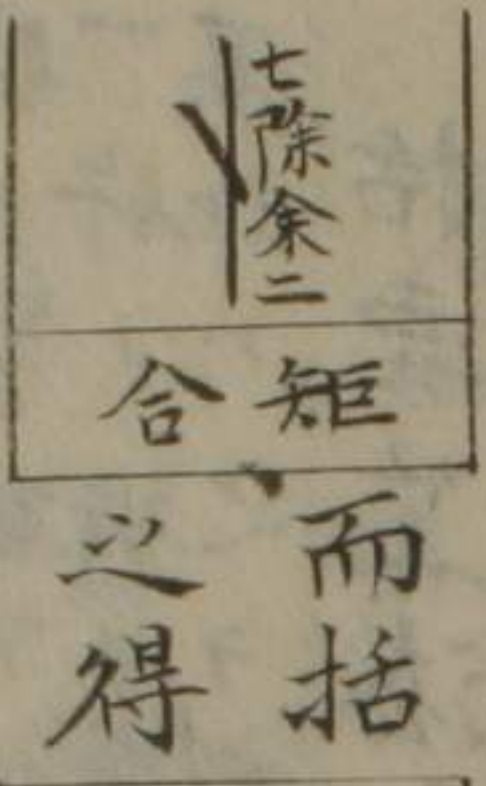 七除余二
矩合
而括
之得